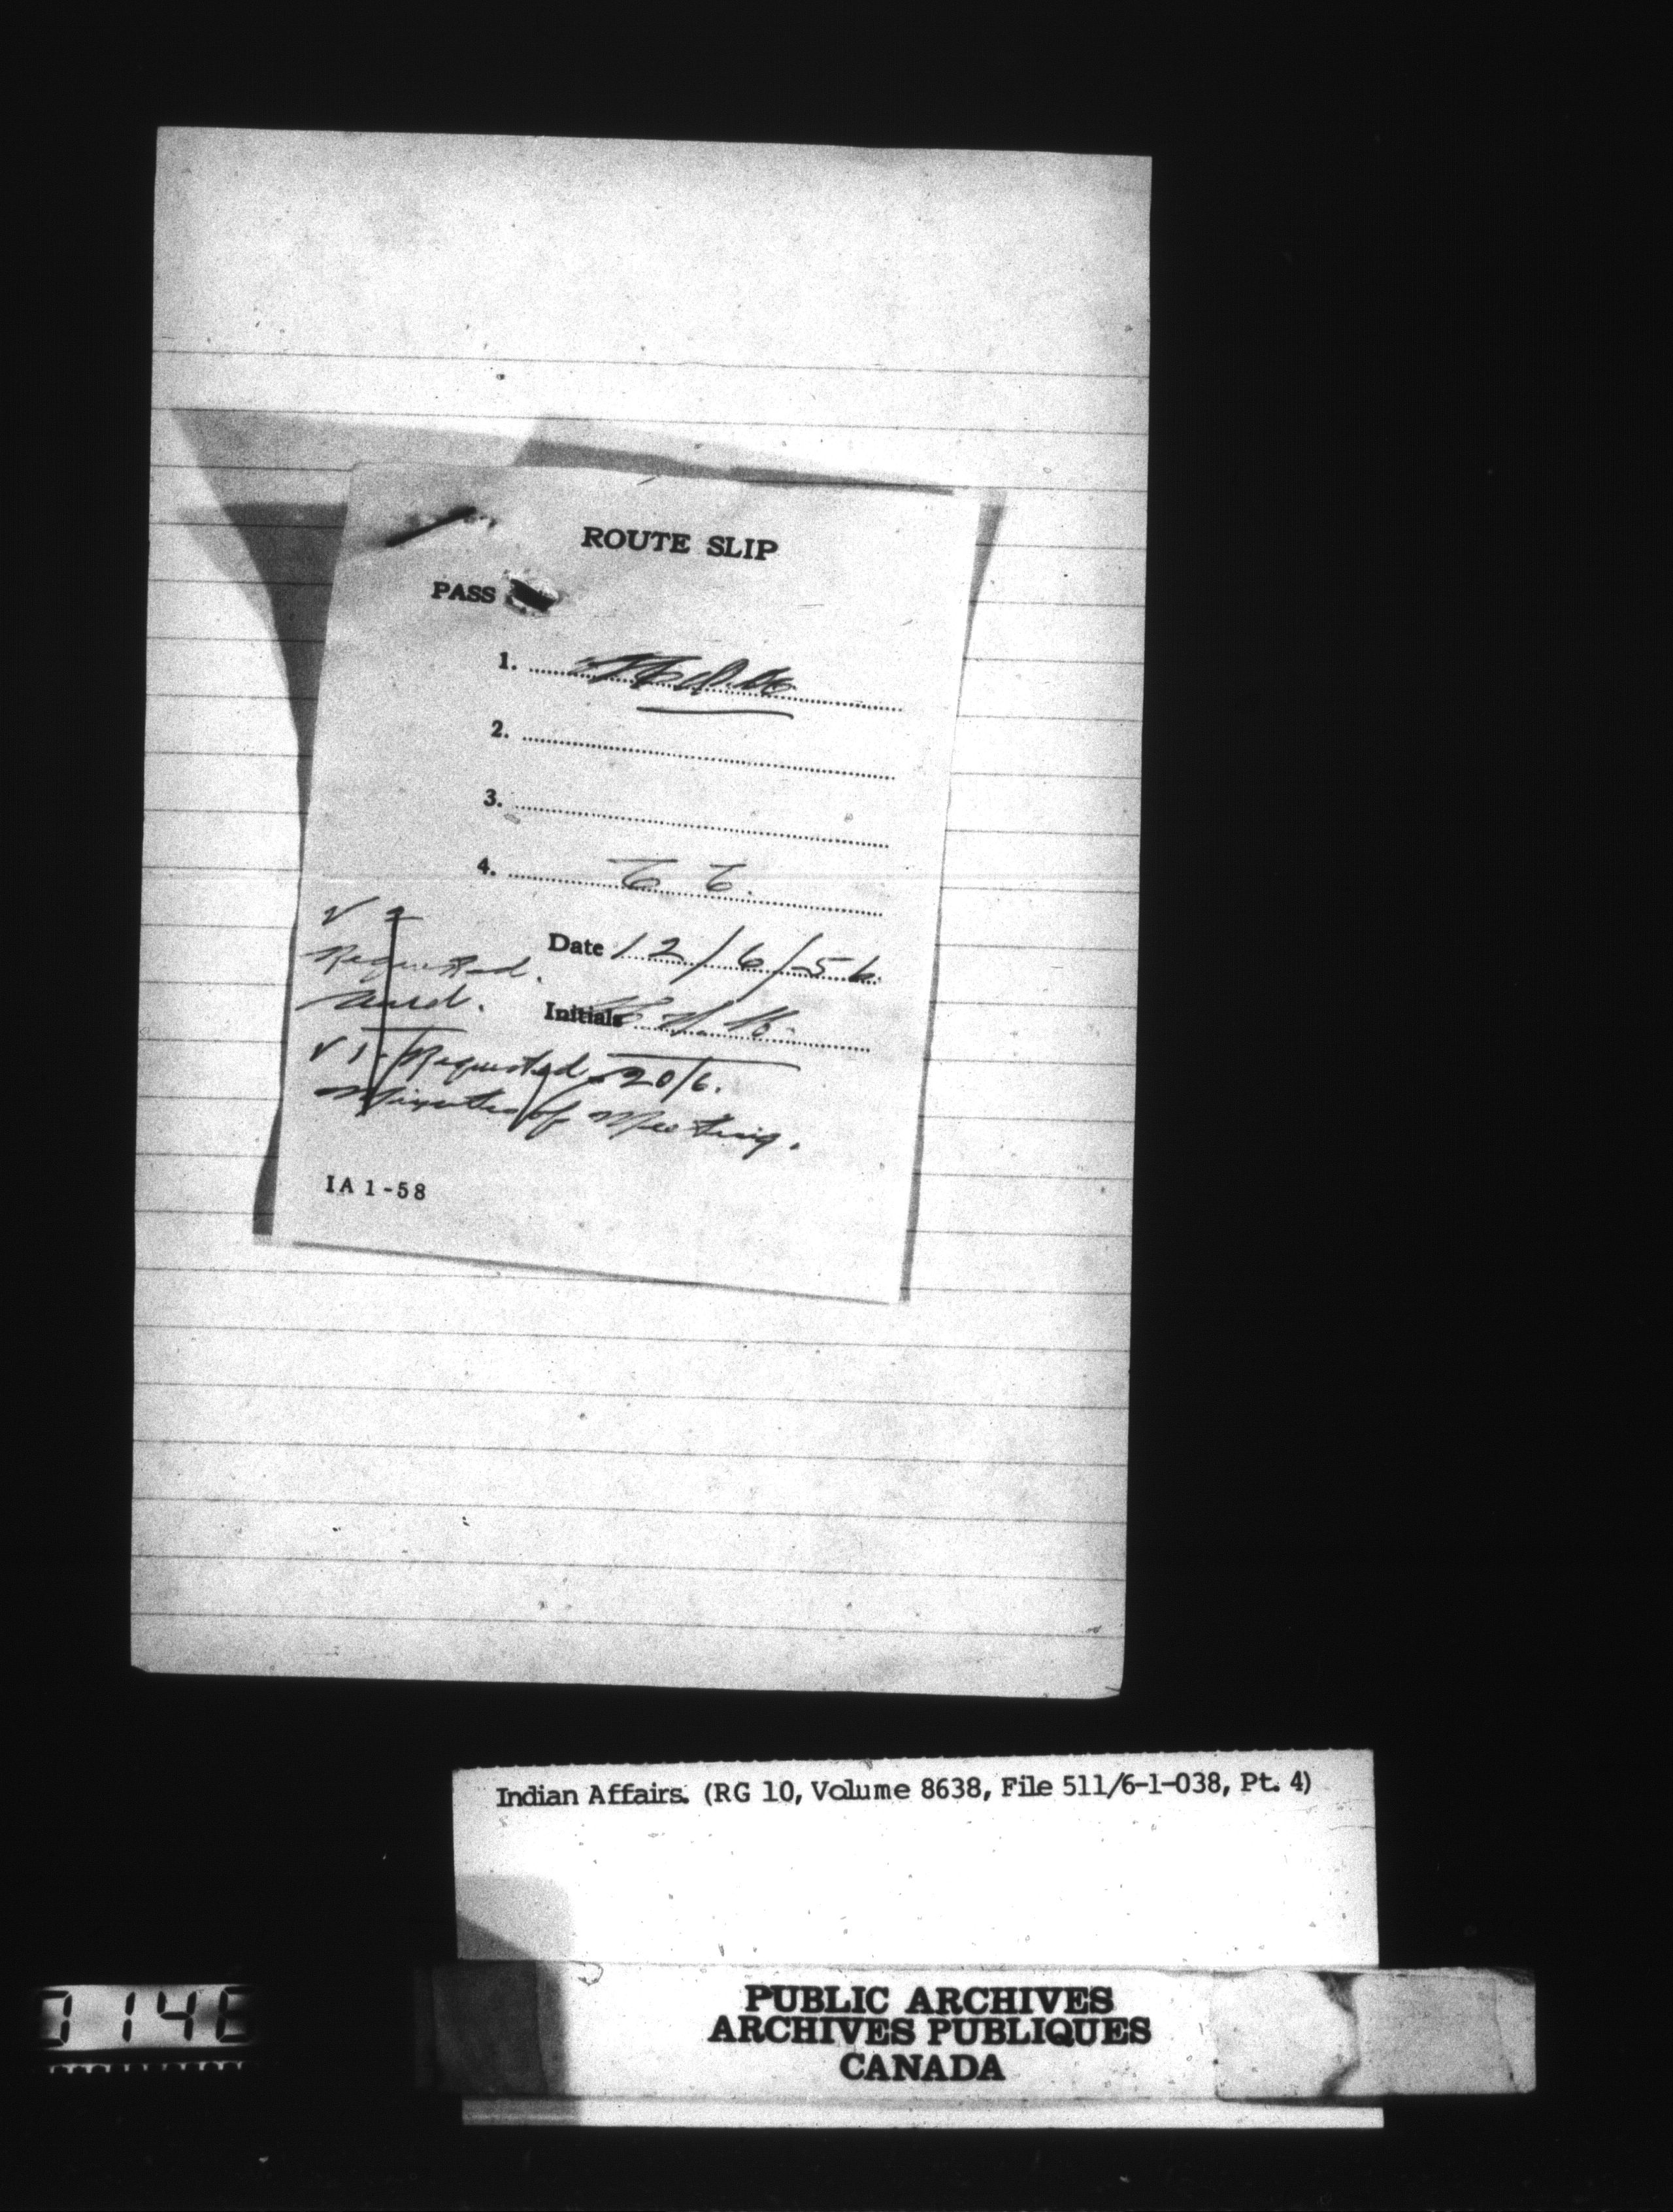 ROUTE SLIP
PASS
1.
2.
3.
4.
Date 12/6/56
Requested.
Initials
√ 1 - Requested 20/6.
Minutes of Meeting.
IA 1-58
Indian Affairs. (RG 10, Volume 8638, File 511/6-1-038, Pt. 4)
PUBLIC ARCHIVES
ARCHIVES PUBLIQUES
CANADA